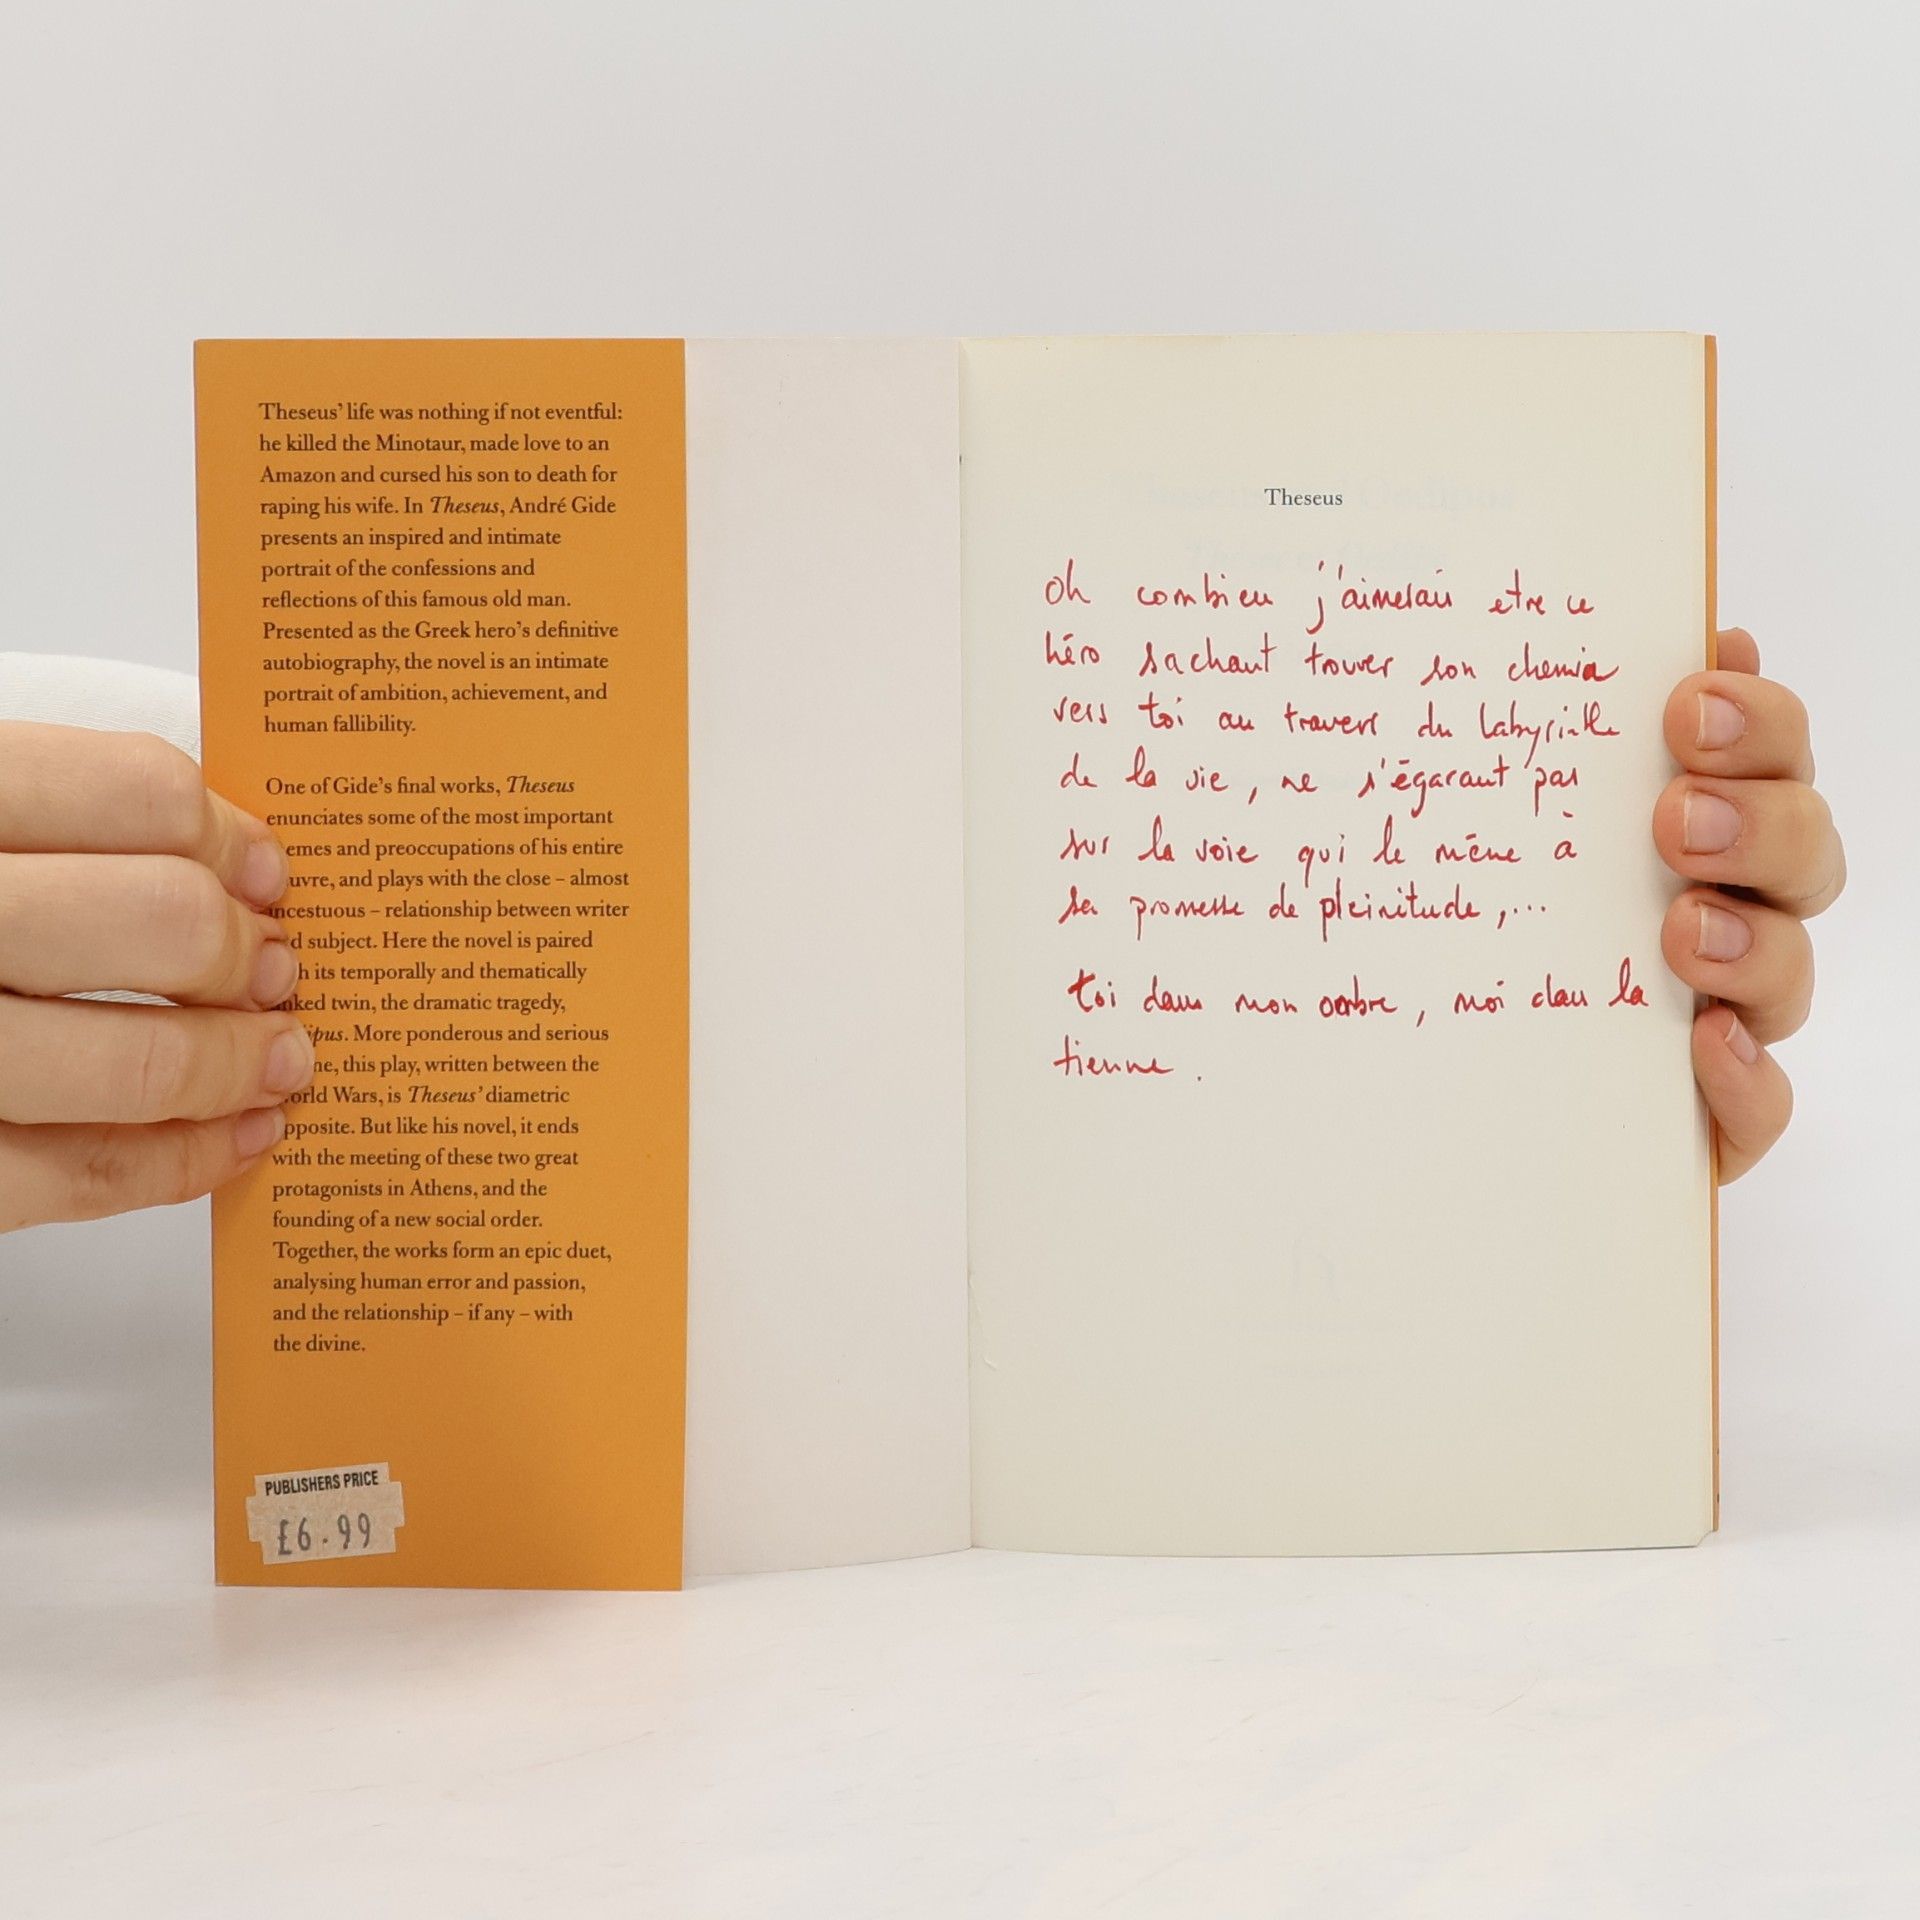 Theseus' life was nothing if not eventful:
he killed the Minotaur, made love to an
Amazon and cursed his son to death for
raping his wife. In Theseus, André Gide
presents an inspired and intimate
portrait of the confessions and
reflections of this famous old man.
Presented as the Greek hero's definitive
autobiography, the novel is an intimate
portrait of ambition, achievement, and
human fallibility.
One of Gide's final works, Theseus
enunciates some of the most important
emes and preoccupations of his entire
uvre, and plays with the close – almost
incestuous – relationship between writer
d subject. Here the novel is paired
h its temporally and thematically
nked twin, the dramatic tragedy,
ipus. More ponderous and serious
ne, this play, written between the
orld Wars, is Theseus' diametric
pposite. But like his novel, it ends
with the meeting of these two great
protagonists in Athens, and the
founding of a new social order.
Together, the works form an epic duet,
analysing human error and passion,
and the relationship – if any – with
the divine.
PUBLISHERS PRICE
£6.99
Theseus
Oh combien j'aimerais etre ce
héro sachant trouver son chemin
vers toi au travers du labyrinthe
de la vie, ne s'égarant pas
sur la voie qui le mène à
sa promesse de pleinitude,...
toi dans mon ombre, moi dans la
tienne.